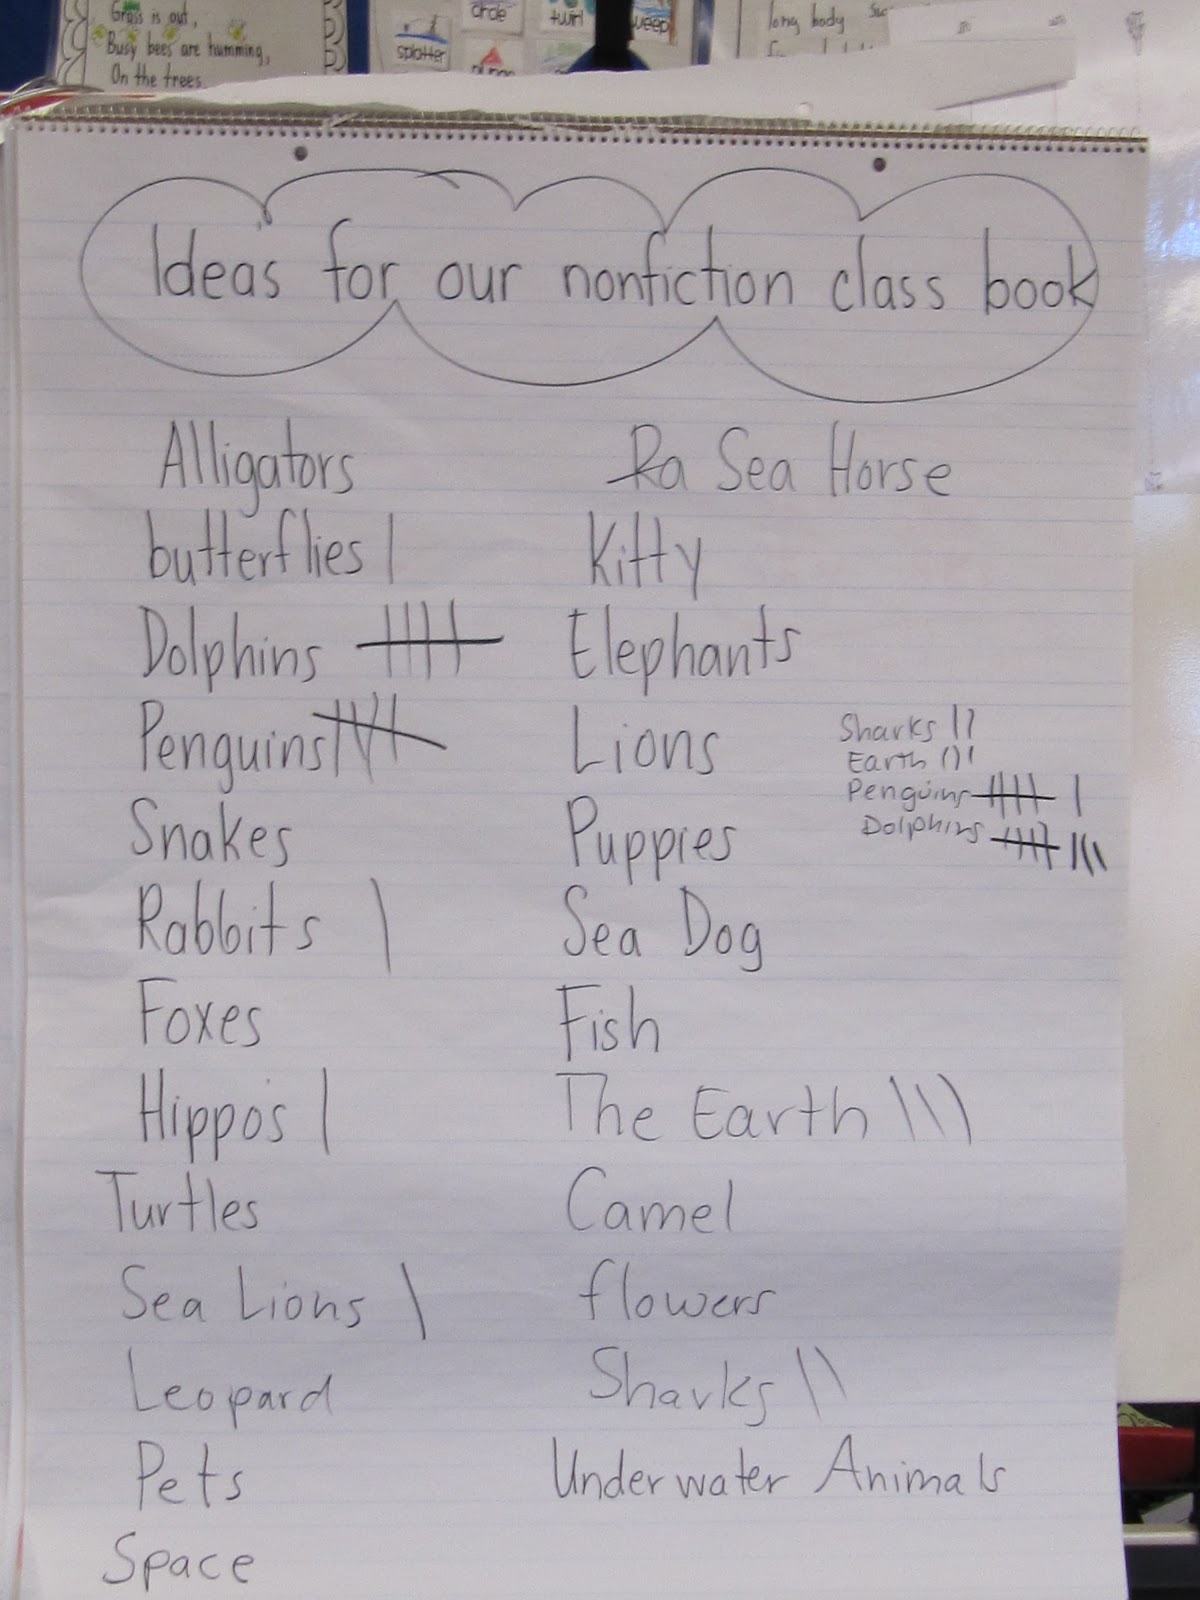 Grass is out,
Busy bees are humming,
On the trees
splatter
circle
twirl
weep
long body
Ideas for our nonfiction class book
Alligators
butterflies |
Dolphins 卌
Penguins 卌
Snakes
Rabbits |
Foxes
Hippos |
Turtles
Sea Lions |
Leopard
Pets
Space
Ra Sea Horse
Kitty
Elephants
Lions
Puppies
Sea Dog
Fish
The Earth |||
Camel
flowers
Sharks ||
Underwater Animals
Sharks ||
Earth |||
Penguins 卌 |
Dolphins 卌 |||